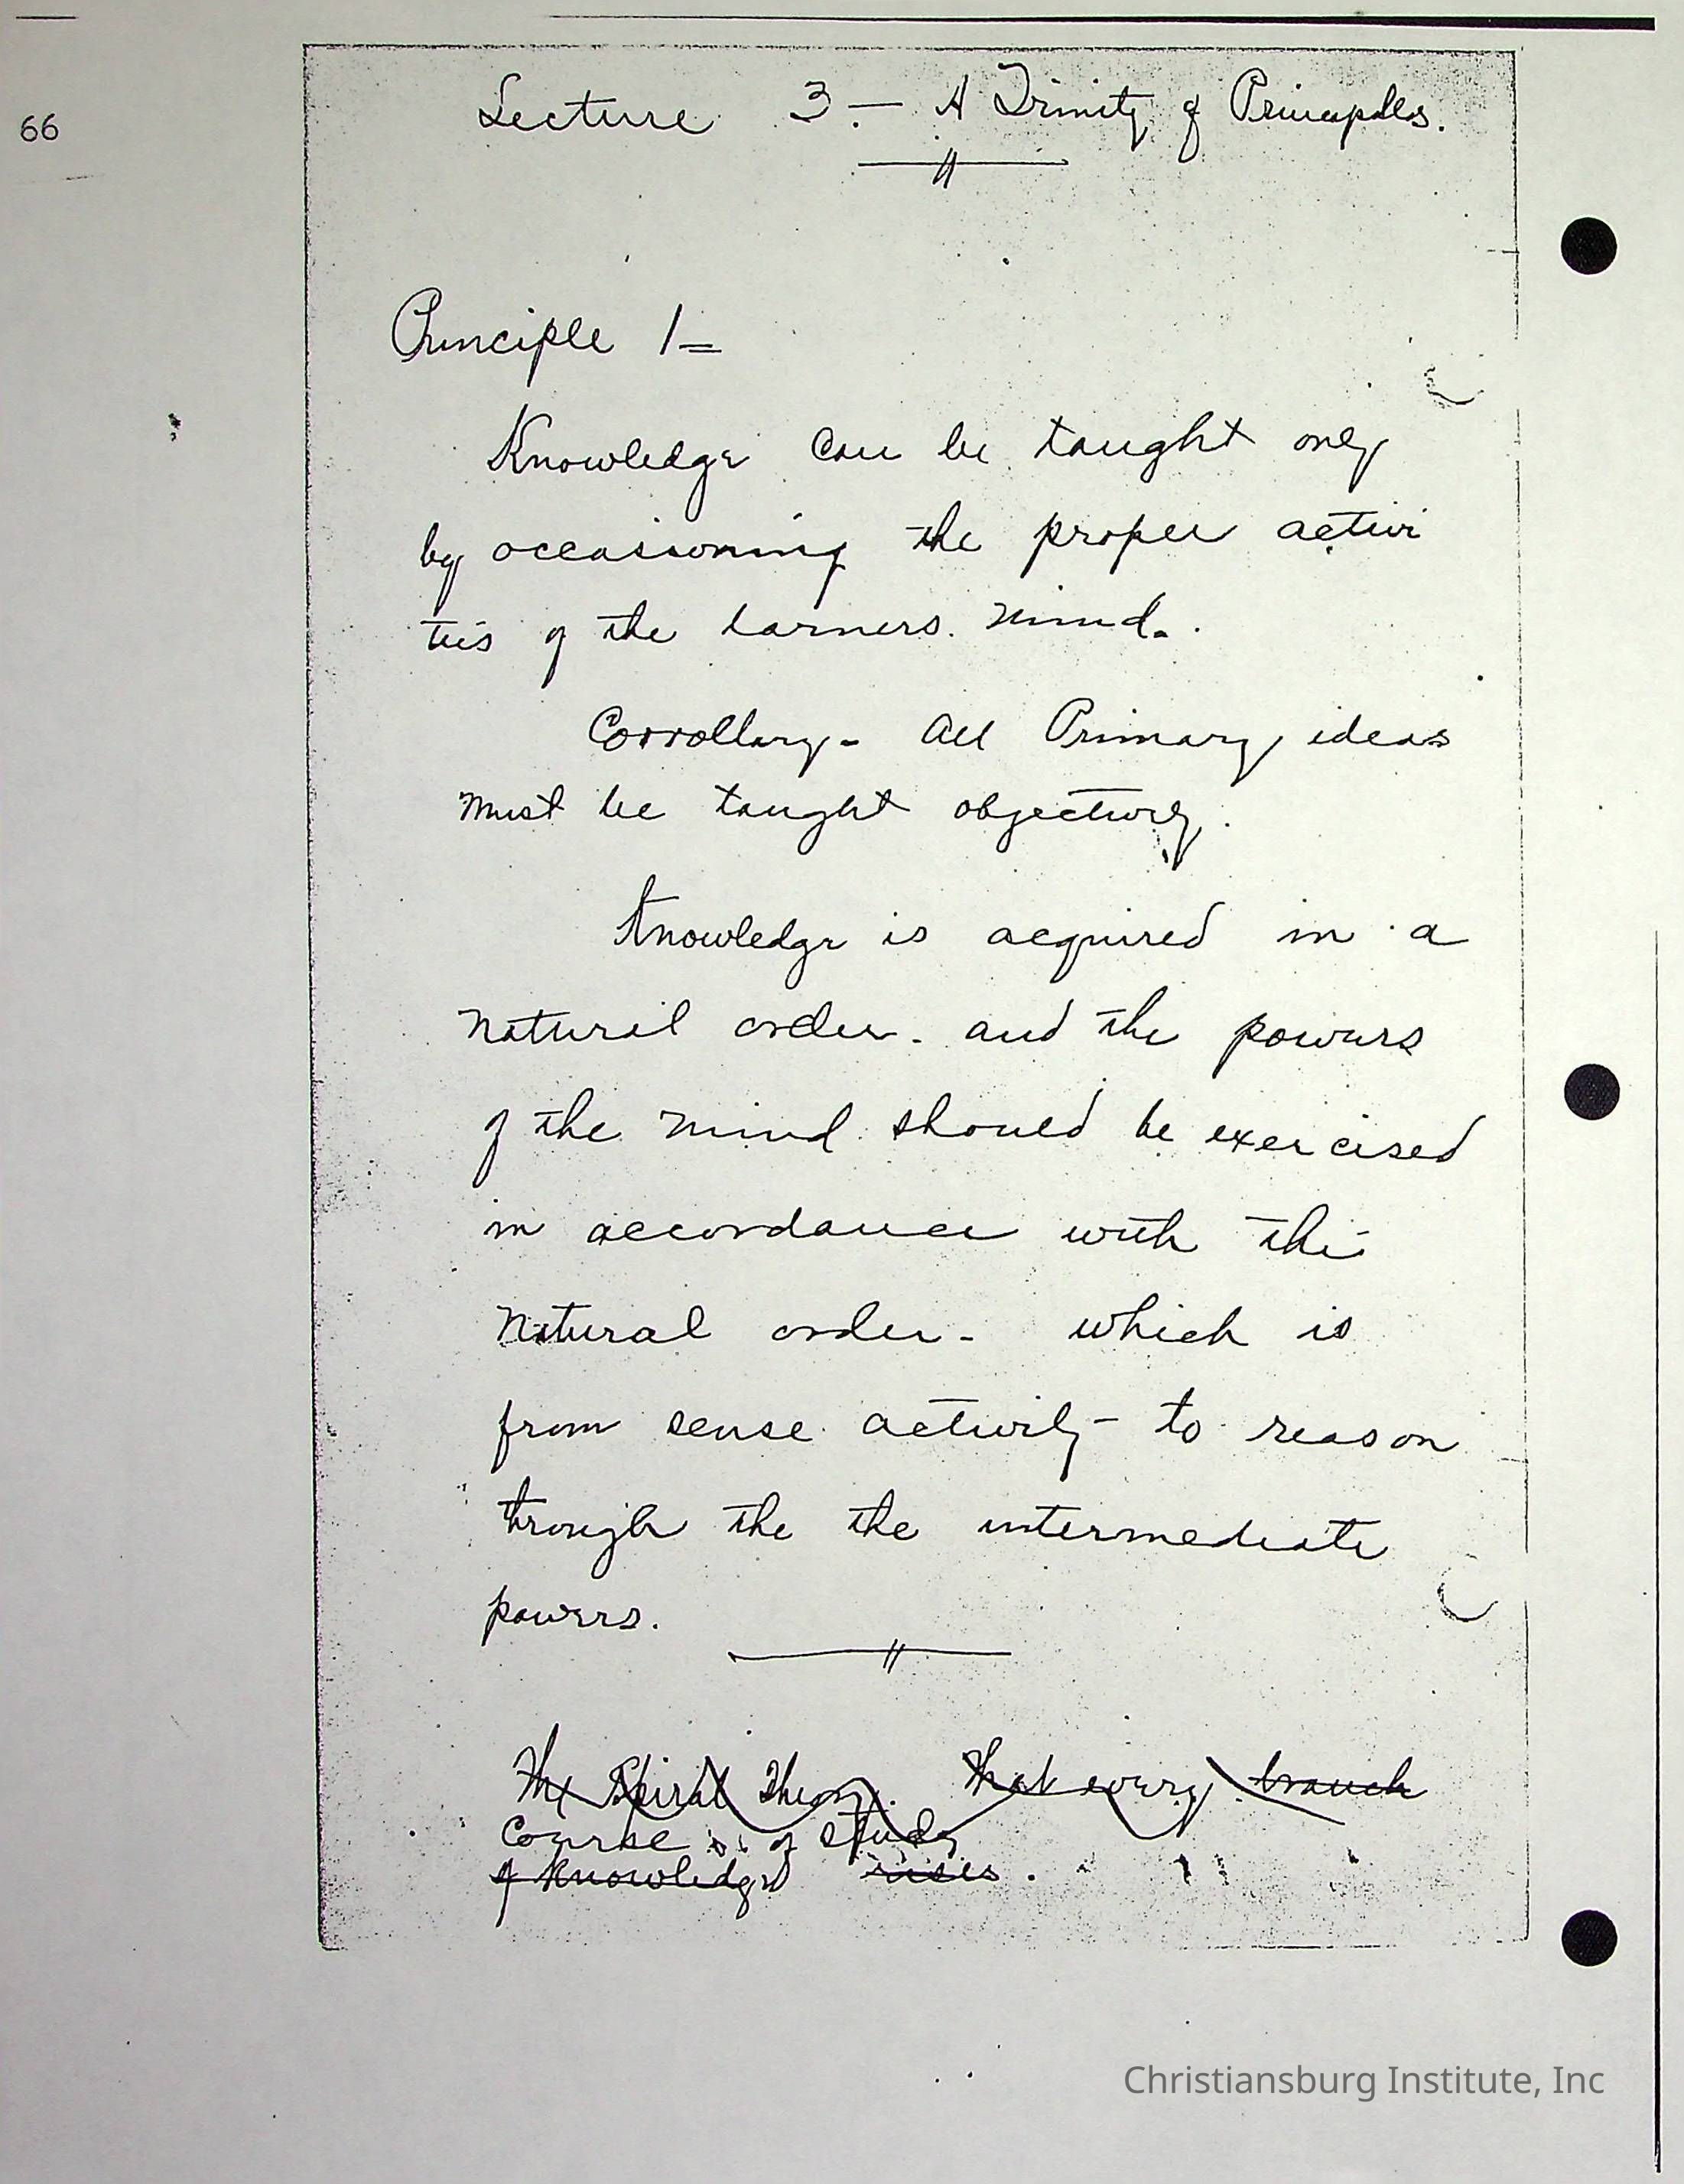 66
Lecture 3.— A Trinity of Principles.
Principle 1=
Knowledge can be taught only
by occassioning the proper activi
ties of the larners mind.
Corrollary- All Primary ideas
must be taught objectively.
Knowledge is acquired in a
natural order. and the powers
of the mind should be exercised
in accordance with this
natural order- which is
from sense activity- to reason
through the the intermediate
powers.
The Spiral Theory. That every branch
Course of study
of Knowledge rises.
Christiansburg Institute, Inc